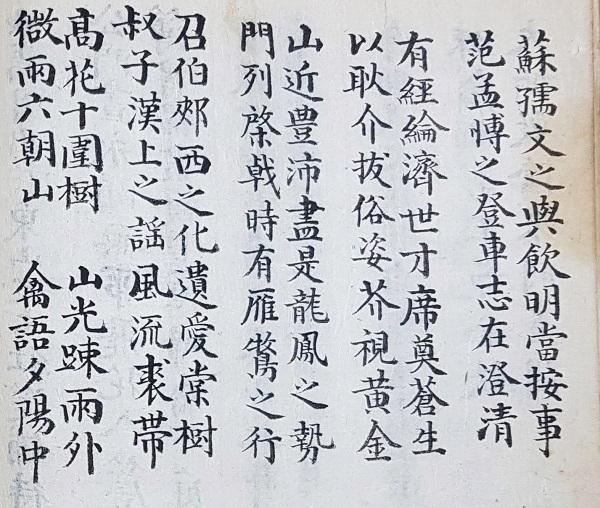 蘇孺文之與飲明當按事
范孟愽之登車志在澄清
有經綸濟世才席奠蒼生
以耿介拔俗姿芥視黃金
山近豊沛盡是龍鳳之勢
門列棨戟時有雁鶩之行
召伯郊西之化遺愛棠樹
叔子漢上之謡風流裘帶
髙花十圍樹
微雨六朝山
山光踈雨外
禽語夕陽中